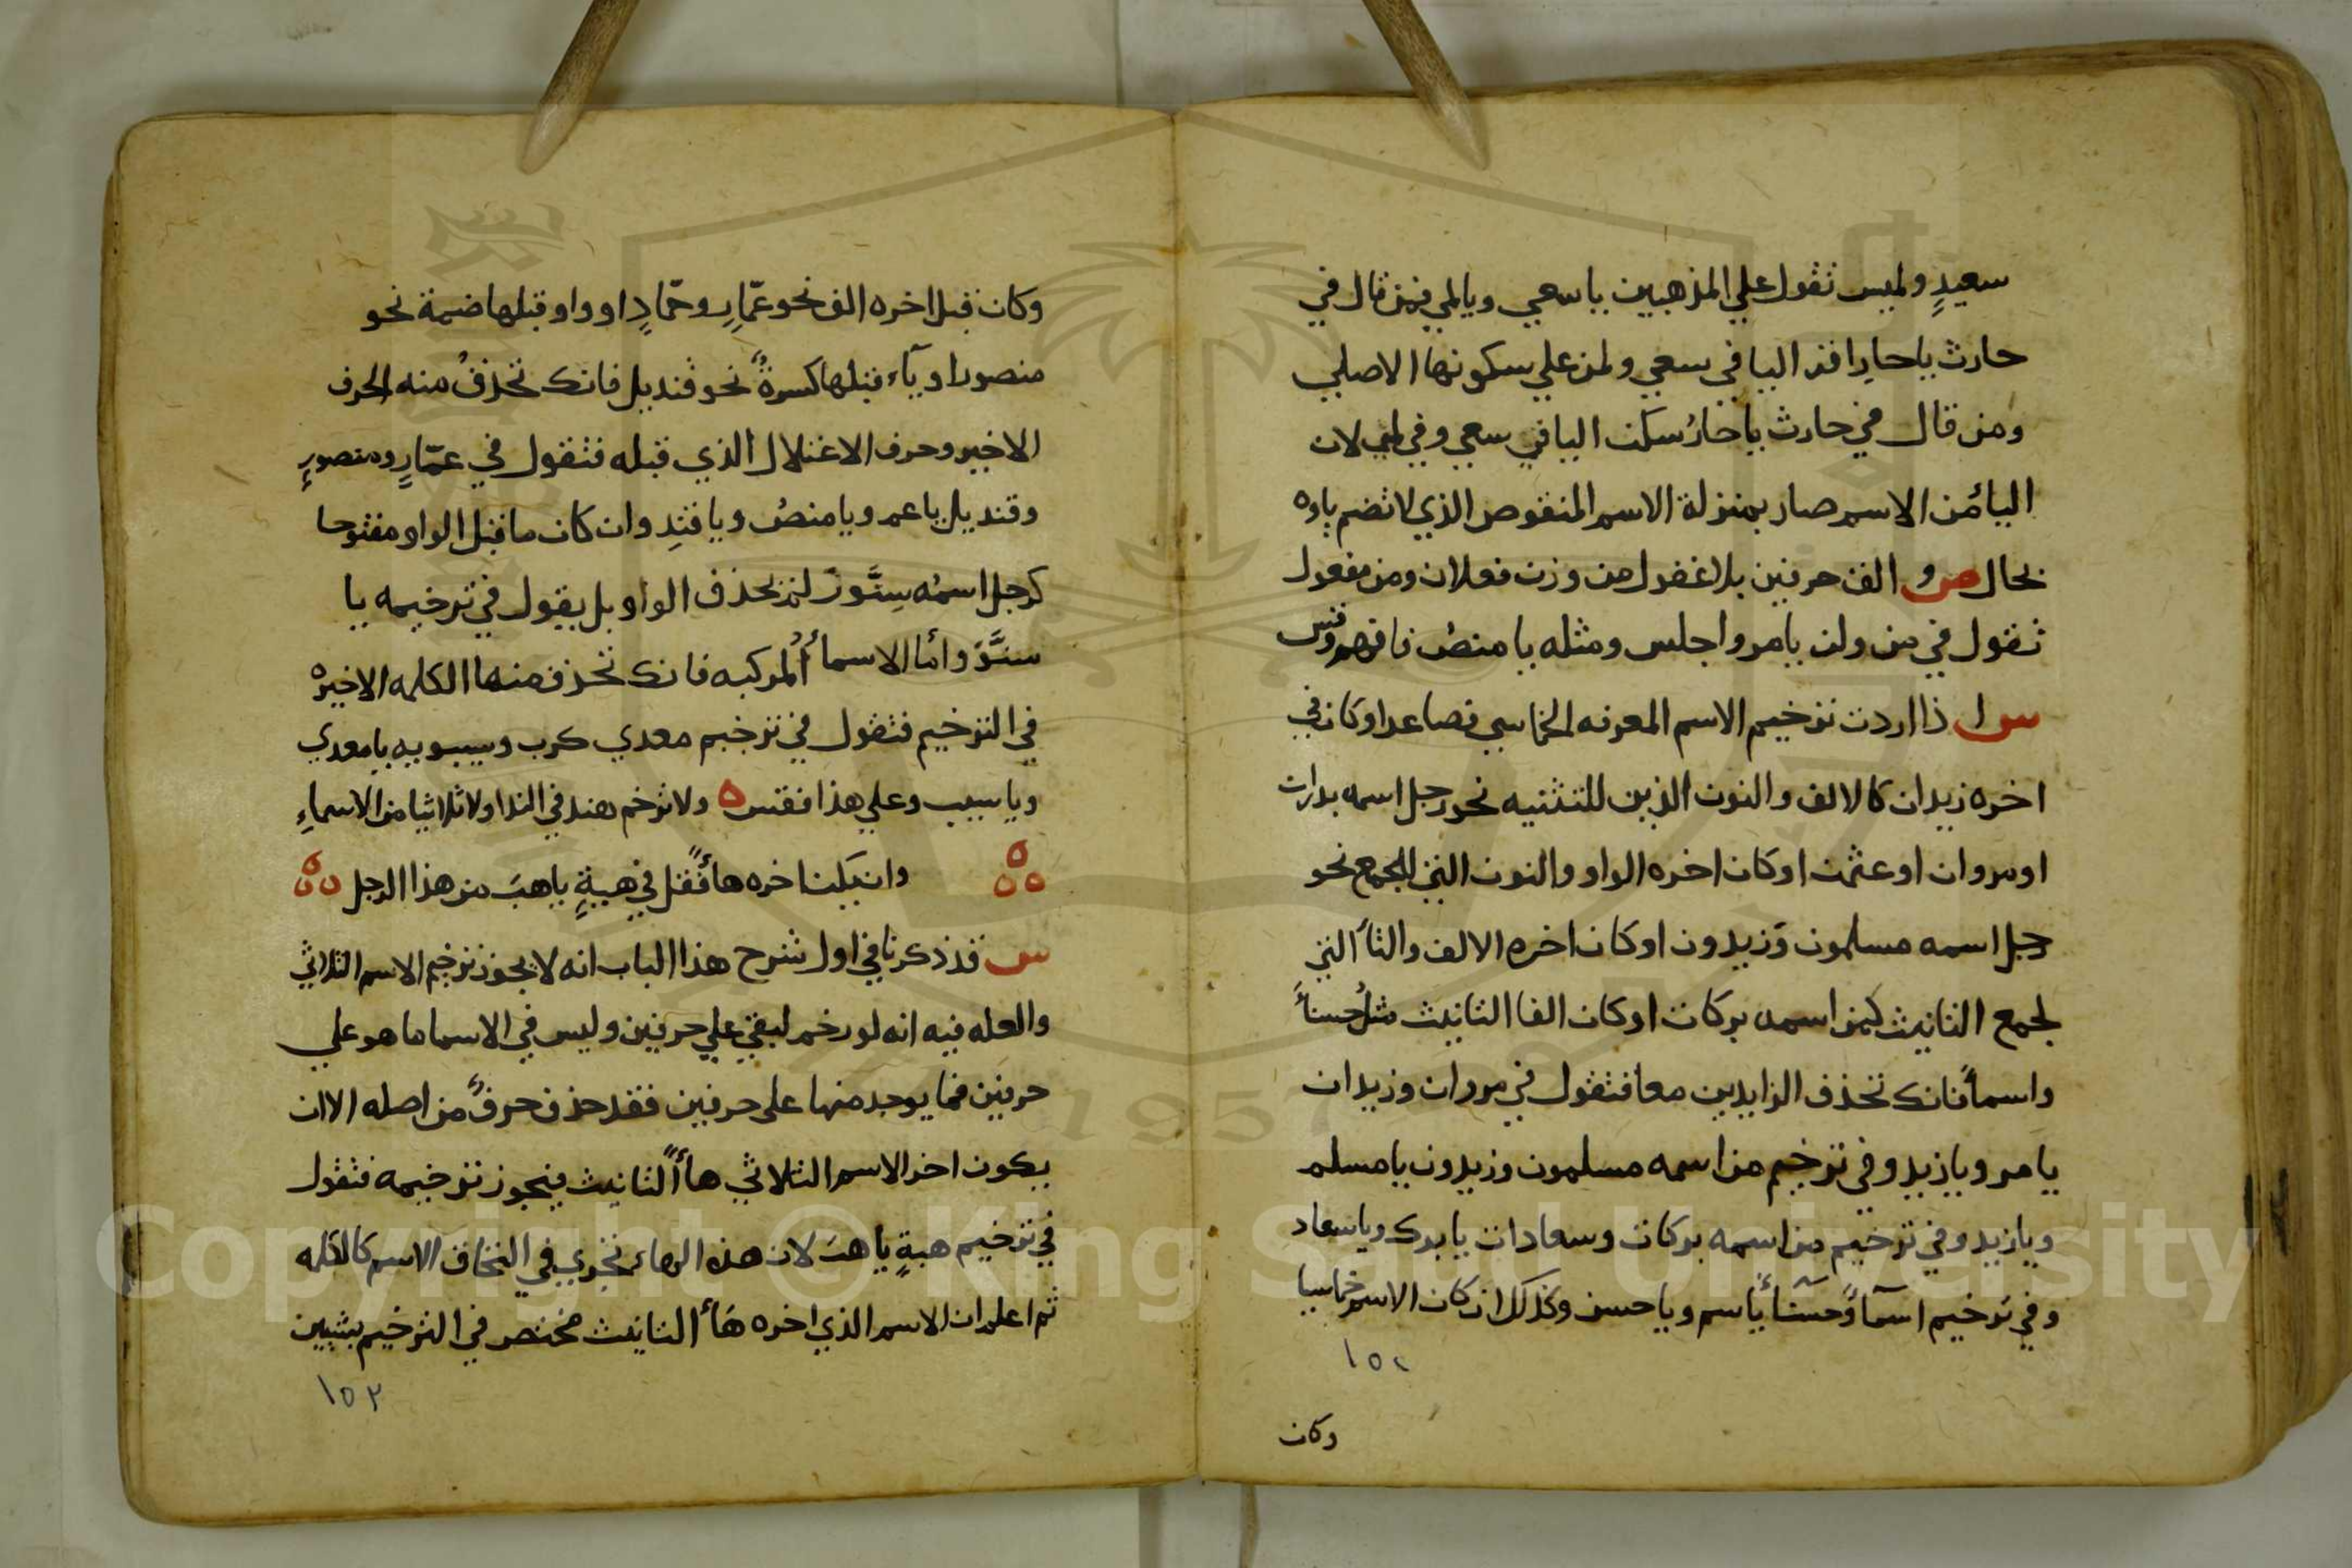 سعيدٍ ولميس تقول علي المذهبين ياسعي ويالمي فمن قال في
حارث ياحارِ اقر اليا في سعي ولمي علي سكونها الاصلي
ومن قال في حارث ياحارُ سكن اليا في سعي وفي لمي لان
الياءَ من الاسم صار بمنزلة الاسم المنقوص الذي لا تضم ياوه
بحال ص و الق حرفين بلا غفول من وزن فعلان ومن مفعول
تقول في مرولن يامرو اجلس ومثله يا منصُ فافهم وقس
س اذا اردت ترخيم الاسم المعرفه الخماسي فصاعدا وكان في
اخره زيدان كالالف والنون الذين للتثنيه نحو رجل اسمه بدران
اومروان او عثمن اوكان اخره الواو والنون التي للجمع نحو
رجل اسمه مسلمون وَزيدون اوكان اخره الالف والتأ التي
لجمع التانيث كمن اسمه بركات اوكان الفا التانيث مثلُ حسنأ
واسمأ فانك تحذف الزايدين معا فتقول في مروان وزيدان
يا مرو يازيد وفي ترخيم من اسمه مسلمون وزيدون يا مسلم
ويازيد وفي ترخيم من اسمه بركات وسعادات يا برك وياسعاد
وفي ترخيم اسمآ وحسنآ يأسم وياحسن وكذلك ان كان الاسم خماسيا
١٥٢
وكان
وكان قبل اخره الف نحو عمّارِ وحمّادٍ او واو قبلها ضمة نحو
منصور او يآء قبلها كسرةٌ نحو قنديل فانك تحذفُ منه الحرف
الاخير وحرف الاعتلال الذي قبله فتقول في عمّارٍ ومنصورٍ
وقنديل ياعم ويا منصُ ويا قندِ وان كان ما قبل الواو مفتوحا
كرجل اسمُه سِنَّور لم تحذف الواو بل يقول في ترخيمه يا
سنَّوَ وأما الاسمأ المركبه فانك تحذف منها الكلمه الاخيره
في الترخيم فتقول في ترخيم معدي كرب وسيبويه يامعدي
وياسيب وعلي هذا فقس ه ولا ترخم هند في الندا ولا ثلاثيا من الاسماءِ
وان يكن اخره هأ فقل في هبةٍ ياهبَ من هذا الرجل
س قد ذكرنا في اول شرح هذا الباب انه لا يجوز ترخيم الاسم الثلاثي
والعله فيه انه لو رخم لبقي علي حرفين وليس في الاسما ما هو علي
حرفين فما يوجد منها على حرفين فقد حذف حرفٌ من اصله الا ان
يكون اخر الاسم الثلاثي هأ التانيث فيجوز ترخيمه فتقول
في ترخيم هبةٍ ياهبَ لان هذه الهاء تجري في التحاق الاسم كالكلمه
ثم اعلم ان الاسم الذي اخره هَأ التانيث مختص في الترخيم بشيين
١٥٣